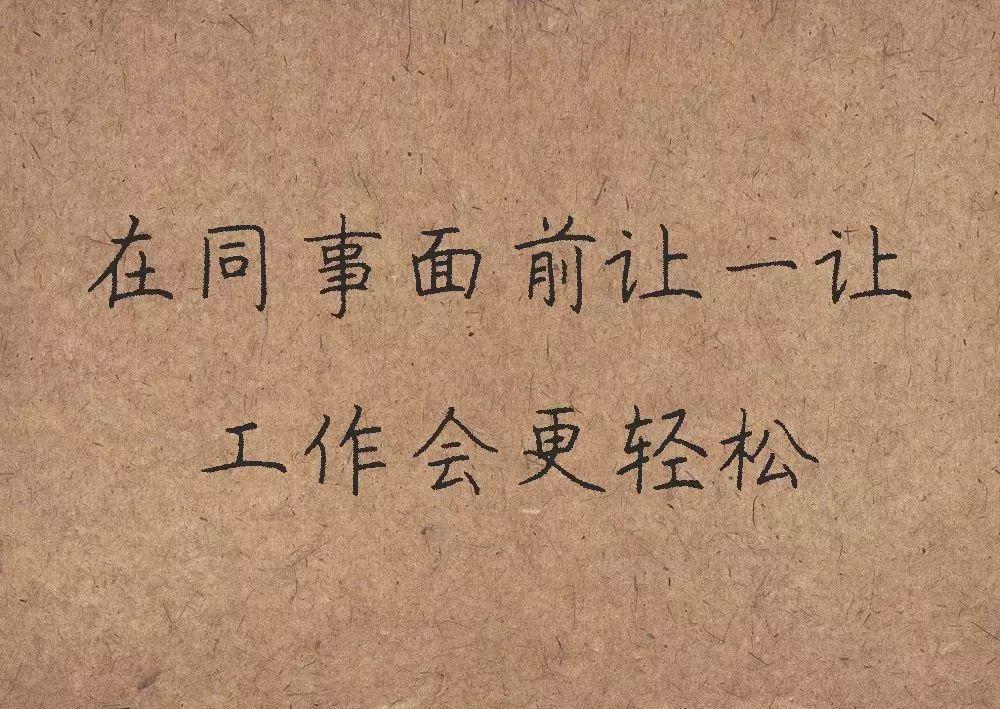 在同事面前让一让
工作会更轻松